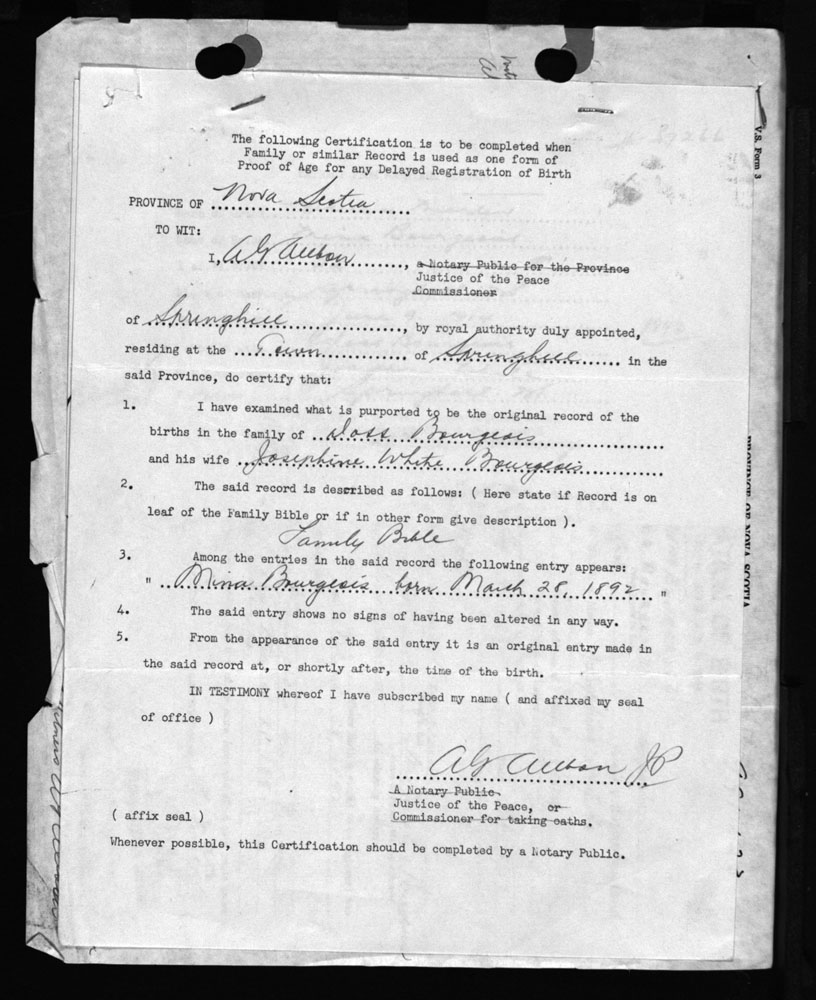 V.S. Form 3
The following Certification is to be completed when
Family or similar Record is used as one form of
Proof of Age for any Delayed Registration of Birth
PROVINCE OF Nova Scotia
TO WIT:
I, A G , a Notary Public for the Province
Justice of the Peace
Commissioner
of Springhill, by royal authority duly appointed,
residing at the Town of Springhill in the
said Province, do certify that:
1. I have examined what is purported to be the original record of the
births in the family of Doss Bourgeois
and his wife Josephine White Bourgeois
2. The said record is described as follows: ( Here state if Record is on
leaf of the Family Bible or if in other form give description ).
Family Bible
3. Among the entries in the said record the following entry appears:
" Mina Bourgeois born March 28, 1892 "
4. The said entry shows no signs of having been altered in any way.
5. From the appearance of the said entry it is an original entry made in
the said record at, or shortly after, the time of the birth.
IN TESTIMONY whereof I have subscribed my name ( and affixed my seal
of office )
A G JP
A Notary Public
Justice of the Peace, or
Commissioner for taking oaths.
( affix seal )
Whenever possible, this Certification should be completed by a Notary Public.
PROVINCE OF NOVA SCOTIA